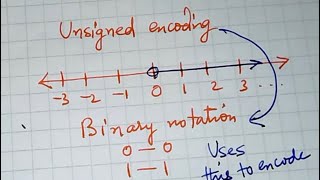 Unsigned encoding
-3 -2 -1 0 1 2 3 ...
Binary notation
0 — 0
1 — 1
Uses
this to encode